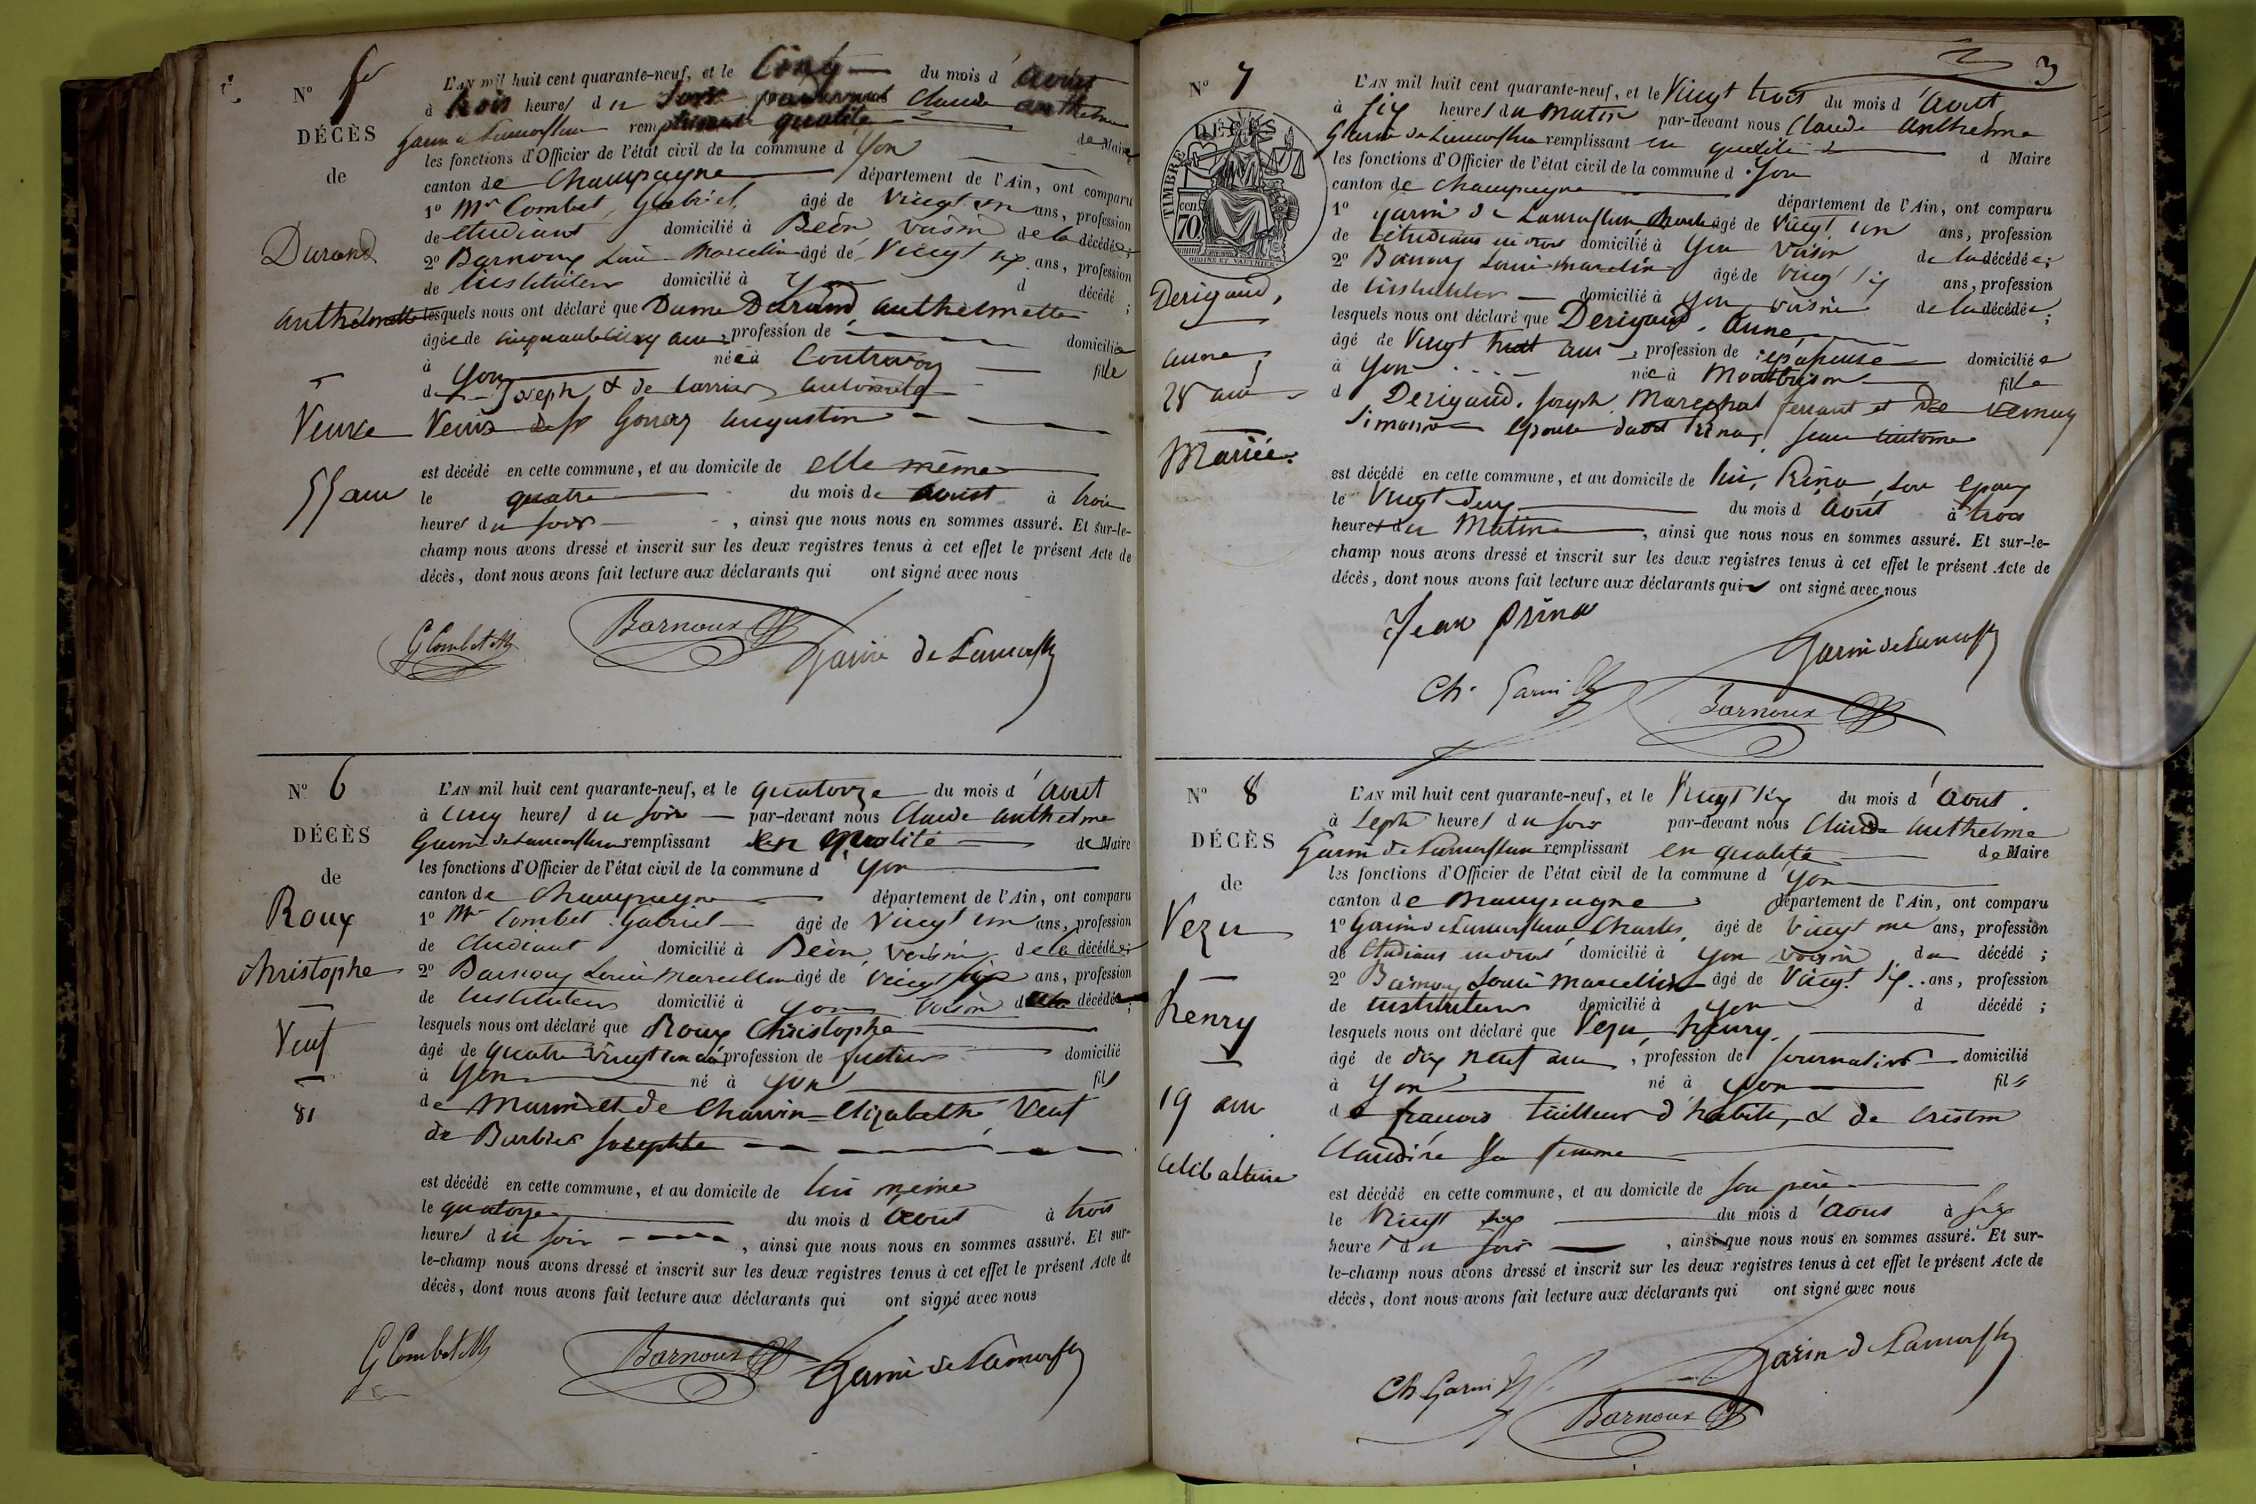 N° 5
L'AN mil huit cent quarante-neuf, et le Cinq du mois d'Août
à trois heures du Soir par devant nous Claude anthelme
DÉCÈS
remplissant en qualité de Maire
les fonctions d'Officier de l'état civil de la commune d'yon
de
canton de Champagne département de l'Ain, ont comparu
1° Mr Combet, Gabriel, âgé de Vingt un ans, profession
de etudiant domicilié à Béon voisin de la décédée;
Durand
2° Barnoux Louis Marcelin âgé de Vingt six ans, profession
de instituteur domicilié à yon d décédé ;
anthelmette
lesquels nous ont déclaré que Dame Durand anthelmette
âgée de cinquante cinq ans, profession de domiciliée
à yon née à fille
de Joseph & de
Veuve
Veuve de augustin
est décédé en cette commune, et au domicile de elle même
55 ans
le quatre du mois de Aoust à trois
heures du soir, ainsi que nous nous en sommes assuré. Et sur-le-
champ nous avons dressé et inscrit sur les deux registres tenus à cet effet le présent Acte de
décès, dont nous avons fait lecture aux déclarants qui ont signé avec nous
G Combet Barnoux
N° 6
L'AN mil huit cent quarante-neuf, et le quatorze du mois d'Aout
à cinq heures du soir par-devant nous Claude anthelme
DÉCÈS
remplissant en qualité de Maire
les fonctions d'Officier de l'état civil de la commune d'yon
de
canton de Champagne département de l'Ain, ont comparu
Roux
1° Mr Combet Gabriel âgé de Vingt un ans, profession
de etudiant domicilié à Béon, voisin de la décédée;
christophe
2° Barnoux Louis Marcellin âgé de Vingt six ans, profession
de instituteur domicilié à yon Voisin d décédé ;
Veuf
lesquels nous ont déclaré que Roux Christophe
âgé de quatre vingt un ans profession de domicilié
à yon né à yon fils
81
de Marin et de Charvin Elizabeth, Veuf
de Barbier Josephte
est décédé en cette commune, et au domicile de lui même
le quatorze du mois d'Août à trois
heures du soir, ainsi que nous nous en sommes assuré. Et sur-
le-champ nous avons dressé et inscrit sur les deux registres tenus à cet effet le présent Acte de
décès, dont nous avons fait lecture aux déclarants qui ont signé avec nous
G Combet Barnoux
3
N° 7
L'AN mil huit cent quarante-neuf, et le Vingt trois du mois d'Aout
à six heures du matin par-devant nous Claude anthelme
DÉCÈS
TIMBRE
70 cen
remplissant en qualité d Maire
les fonctions d'Officier de l'état civil de la commune d'yon
canton de champagne département de l'Ain, ont comparu
1° Charles âgé de Vingt un ans, profession
de étudiant en droit domicilié à yon voisin de la décédée;
2° Barnoux Louis marcelin âgé de vingt six ans, profession
Derigaud,
de instituteur domicilié à yon voisin de la décédée;
lesquels nous ont déclaré que Derigaud, anne
anne,
âgé de Vingt huit ans, profession de domiciliée
à yon née à fille
28 ans
d Derigaud, Joseph, Marechal ferrant et de
épouse Jean
Mariée.
est décédé en cette commune, et au domicile de son epoux
le Vingt deux du mois d'Août à trois
heures du Matin, ainsi que nous nous en sommes assuré. Et sur-le-
champ nous avons dressé et inscrit sur les deux registres tenus à cet effet le présent Acte de
décès, dont nous avons fait lecture aux déclarants qui ont signé avec nous
Jean Prina
Ch. Garin Barnoux
N° 8
L'AN mil huit cent quarante-neuf, et le Vingt six du mois d'Aout.
à Sept heures du soir par-devant nous Claude Anthelme
DÉCÈS
remplissant en qualité de Maire
les fonctions d'Officier de l'état civil de la commune d'yon
de
canton de Champagne département de l'Ain, ont comparu
Vezu
1° Charles, âgé de vingt un ans, profession
de Etudiant en droit domicilié à yon voisin du décédé ;
2° Barnoux Louis marcelin âgé de Vingt six ans, profession
henry
de instituteur domicilié à yon d décédé ;
lesquels nous ont déclaré que Vezu, henry,
âgé de dix neuf ans, profession de journalier domicilié
19 ans
à yon né à yon fils
de francois tailleur d'habits, & de
Claudine sa femme
Celibataire
est décédé en cette commune, et au domicile de son père
le Vingt six du mois d'Aout à six
heures du soir, ainsi que nous nous en sommes assuré. Et sur-
le-champ nous avons dressé et inscrit sur les deux registres tenus à cet effet le présent Acte de
décès, dont nous avons fait lecture aux déclarants qui ont signé avec nous
Ch. Garin Barnoux